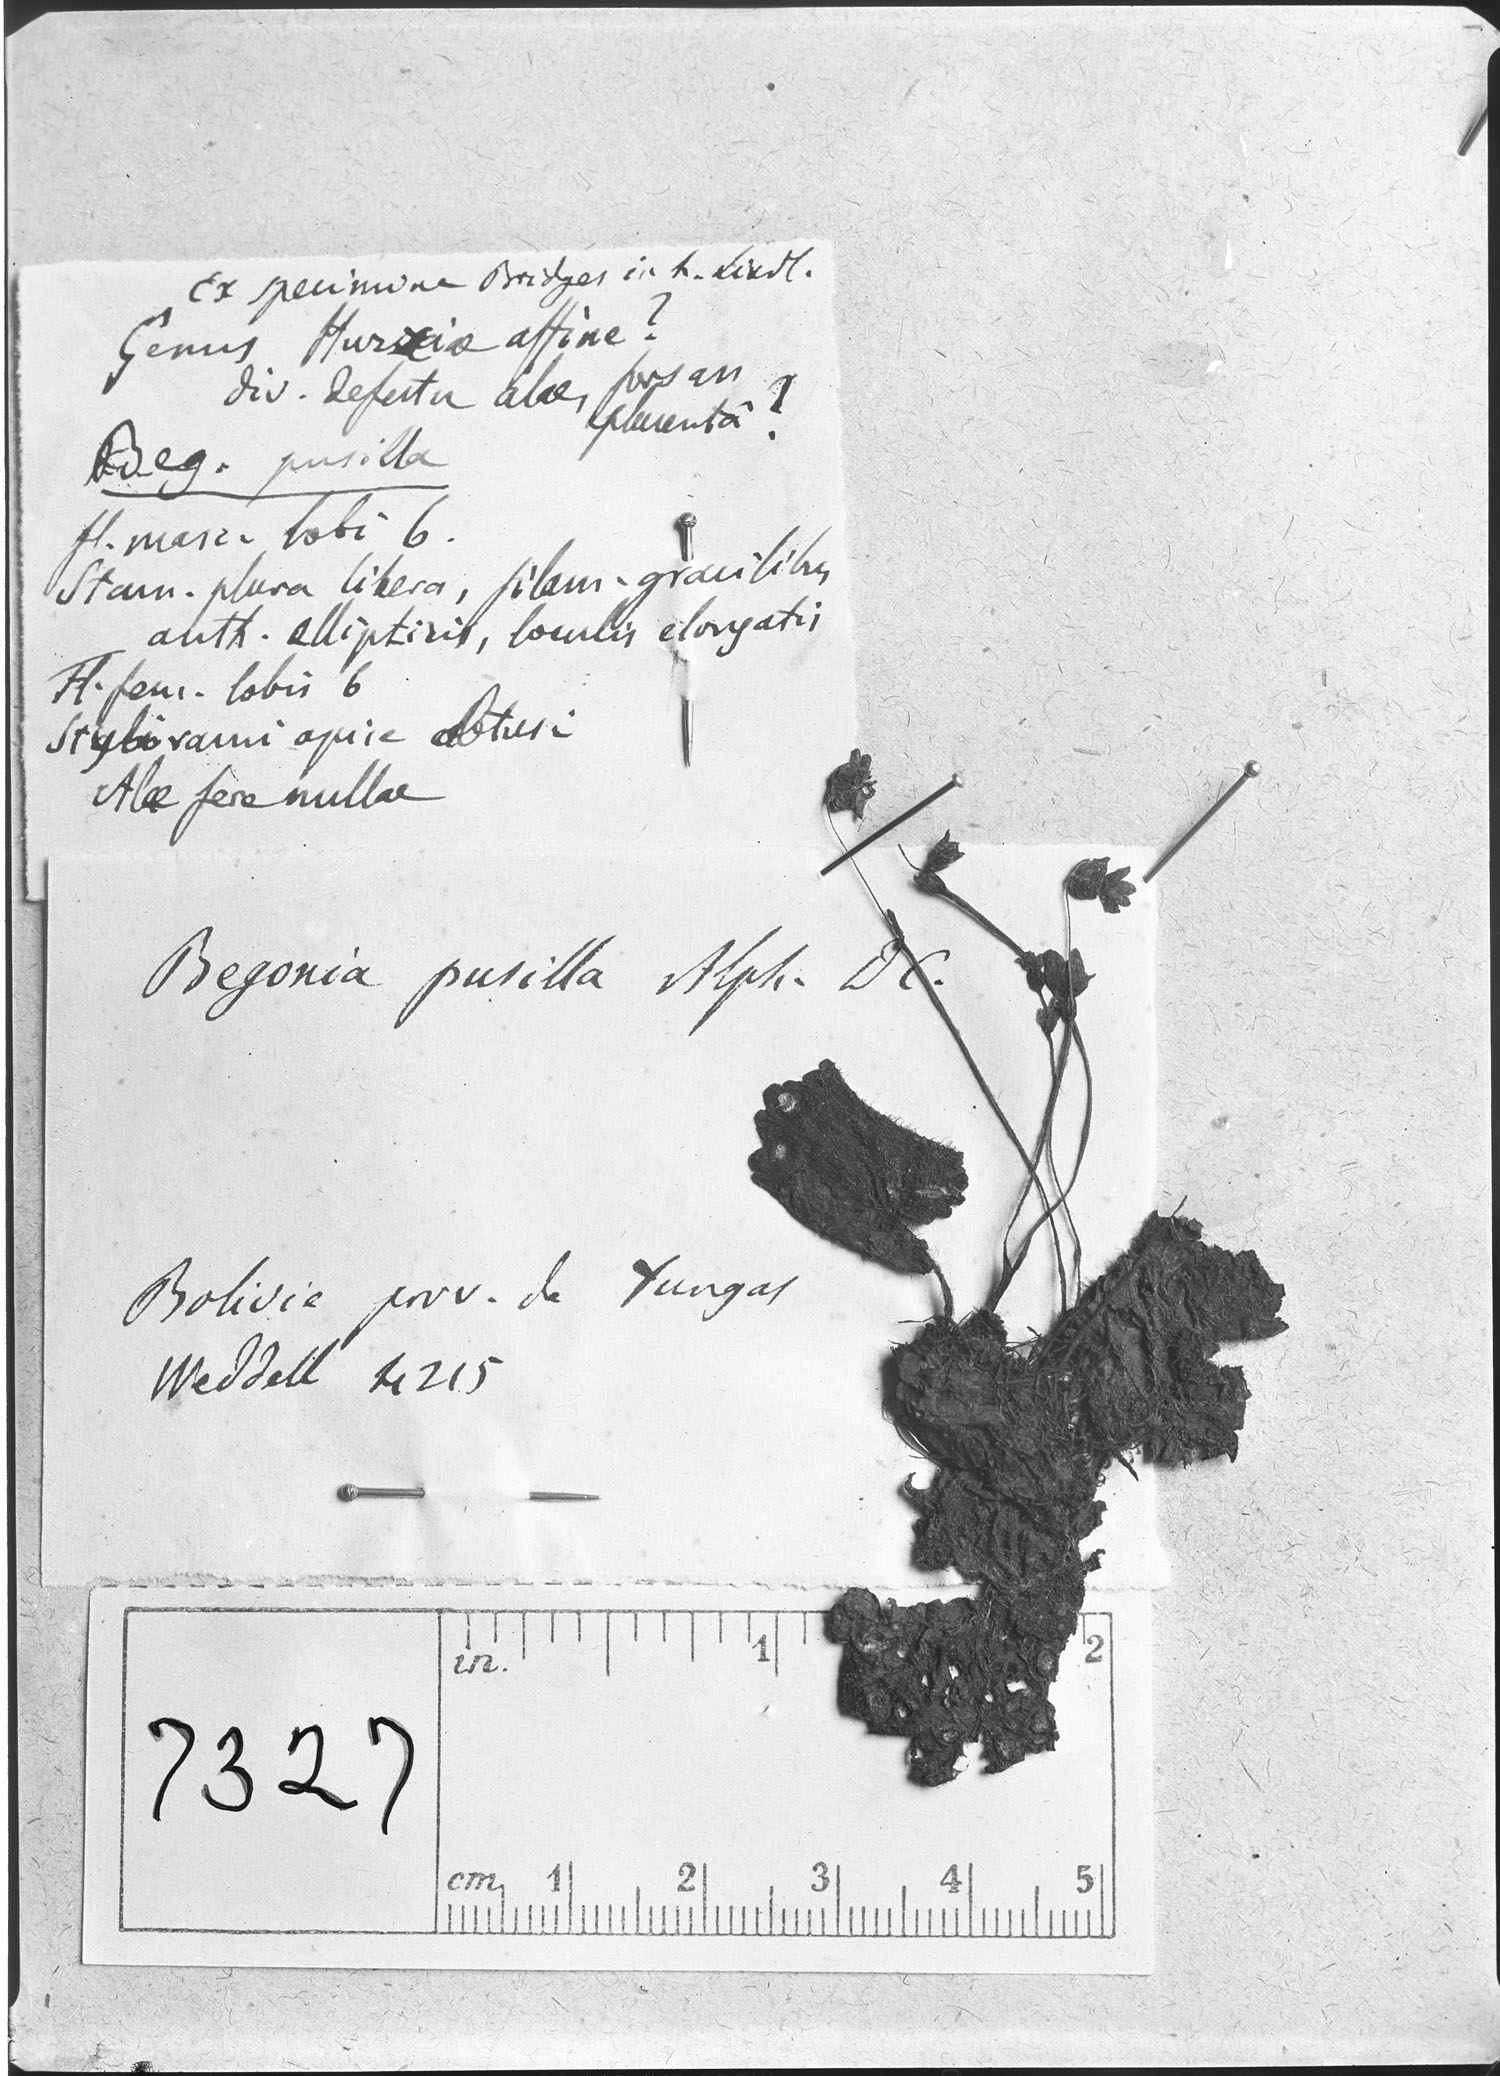 Ex specimine Bridges in h. Lindl.
Genus Hurziæ affine?
div. defectu alæ, forsan
placentâ?
Beg. pusilla
fl. masc. lobi 6.
Stam. plura libera, filam. gracilibus
anth. ellipticis, loculis elongatis
Fl. fem. lobis 6
Styli rami apice obtusi
Alæ fere nullæ
Begonia pusilla Alph. DC.
Bolivie prov. de Yungas
Weddell 4215
in. 1 2
7327
cm 1 2 3 4 5